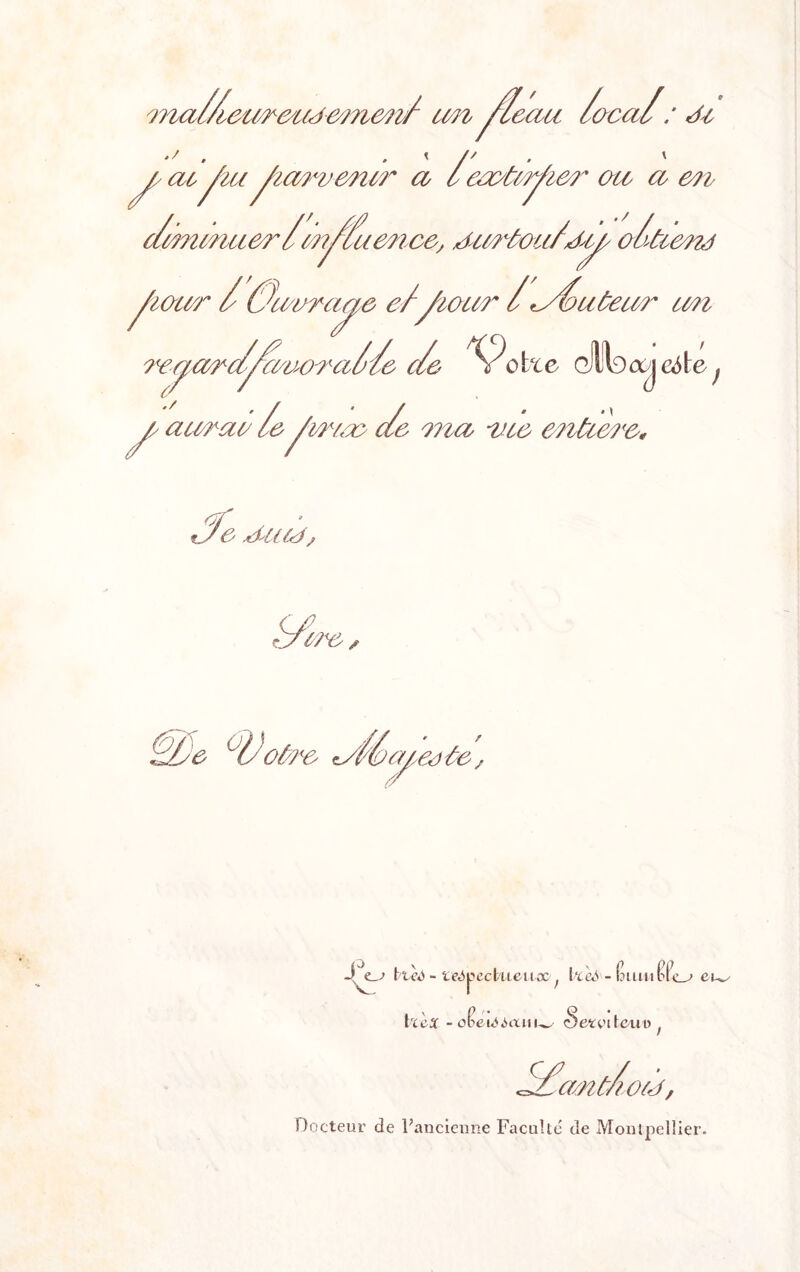 malheureusement un fléau local : si
j'ai pu parvenir à l'extirper ou à en
diminuer l'influence, surtout si j'obtiens
pour l'Ouvrage et pour l'Auteur un
regard favorable de Votre Majesté,
j'aurai le prix de ma vie entière.
Je suis,
Sire,
De Votre Majesté,
Le très-respectueux, très-humble et
très-obéissant Serviteur,
Lanthois,
Docteur de l'ancienne Faculté de Montpellier.